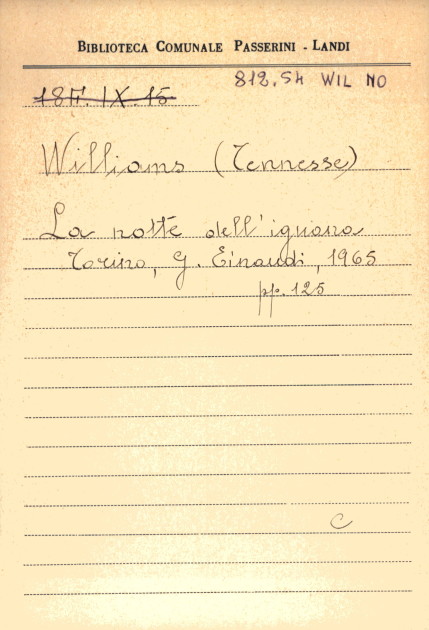 BIBLIOTECA COMUNALE PASSERINI - LANDI
812.54 WIL NO
18H. IX. 15
Williams (Tennesse)
La notte dell'iguana
Torino, G. Einaudi, 1965
pp. 125
C